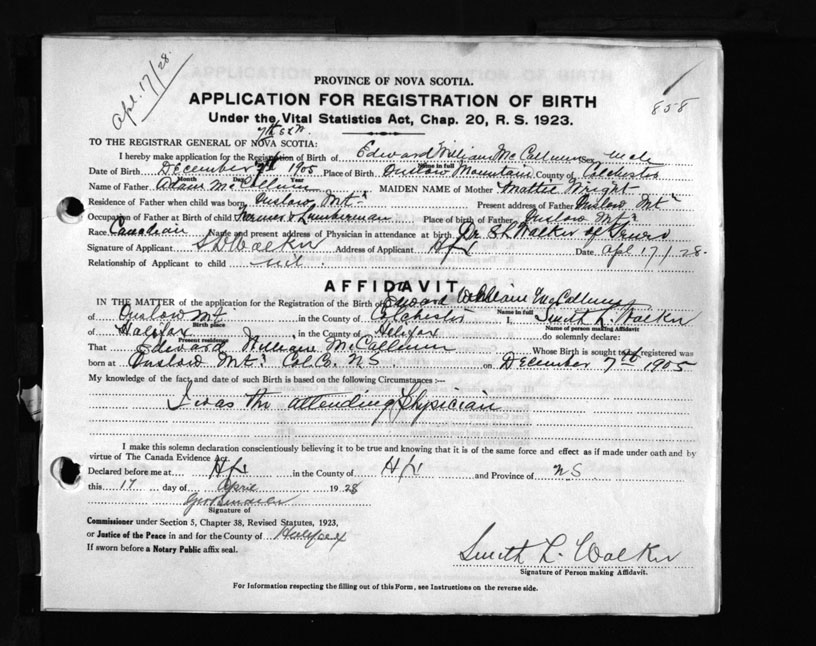 Apl. 17/28.
PROVINCE OF NOVA SCOTIA.
APPLICATION FOR REGISTRATION OF BIRTH
858
Under the Vital Statistics Act, Chap. 20, R. S. 1923.
TO THE REGISTRAR GENERAL OF NOVA SCOTIA:
I hereby make application for the Registration of Birth of Edward William McCallum male
Name in full
Date of Birth December 7th 1905 Place of Birth Onslow Mountain County of Colchester
Month Year
Name of Father Adam McCallum MAIDEN NAME of Mother Mattie Wright
Residence of Father when child was born Onslow Mt Present address of Father Onslow Mt
Occupation of Father at Birth of child Farmer & Lumberman Place of birth of Father Onslow Mt
Race Canadian Name and present address of Physician in attendance at birth Dr. S L Walker of Truro
Signature of Applicant S L Walker Address of Applicant Hfx Date Apl 17/28.
Relationship of Applicant to child nil.
AFFIDAVIT
IN THE MATTER of the application for the Registration of the Birth of Edward William McCallum
Name in full
of Onslow Mt in the County of Colchester I, Smith L. Walker
Birth place Name of person making Affidavit
of Halifax in the County of Halifax do solemnly declare:
Present residence
That Edward William McCallum Whose Birth is sought to be registered was
born at Onslow Mt. Col. Co. NS on December 7th 1905
My knowledge of the fact and date of such Birth is based on the following Circumstances :—
I was the attending Physician
I make this solemn declaration conscientiously believing it to be true and knowing that it is of the same force and effect as if made under oath and by
virtue of The Canada Evidence Act.
Declared before me at Hfx in the County of Hfx and Province of N.S.
this 17 day of April 1928
Signature of
Commissioner under Section 5, Chapter 38, Revised Statutes, 1923,
or Justice of the Peace in and for the County of Halifax
If sworn before a Notary Public affix seal.
Smith L. Walker
Signature of Person making Affidavit.
For Information respecting the filling out of this Form, see Instructions on the reverse side.